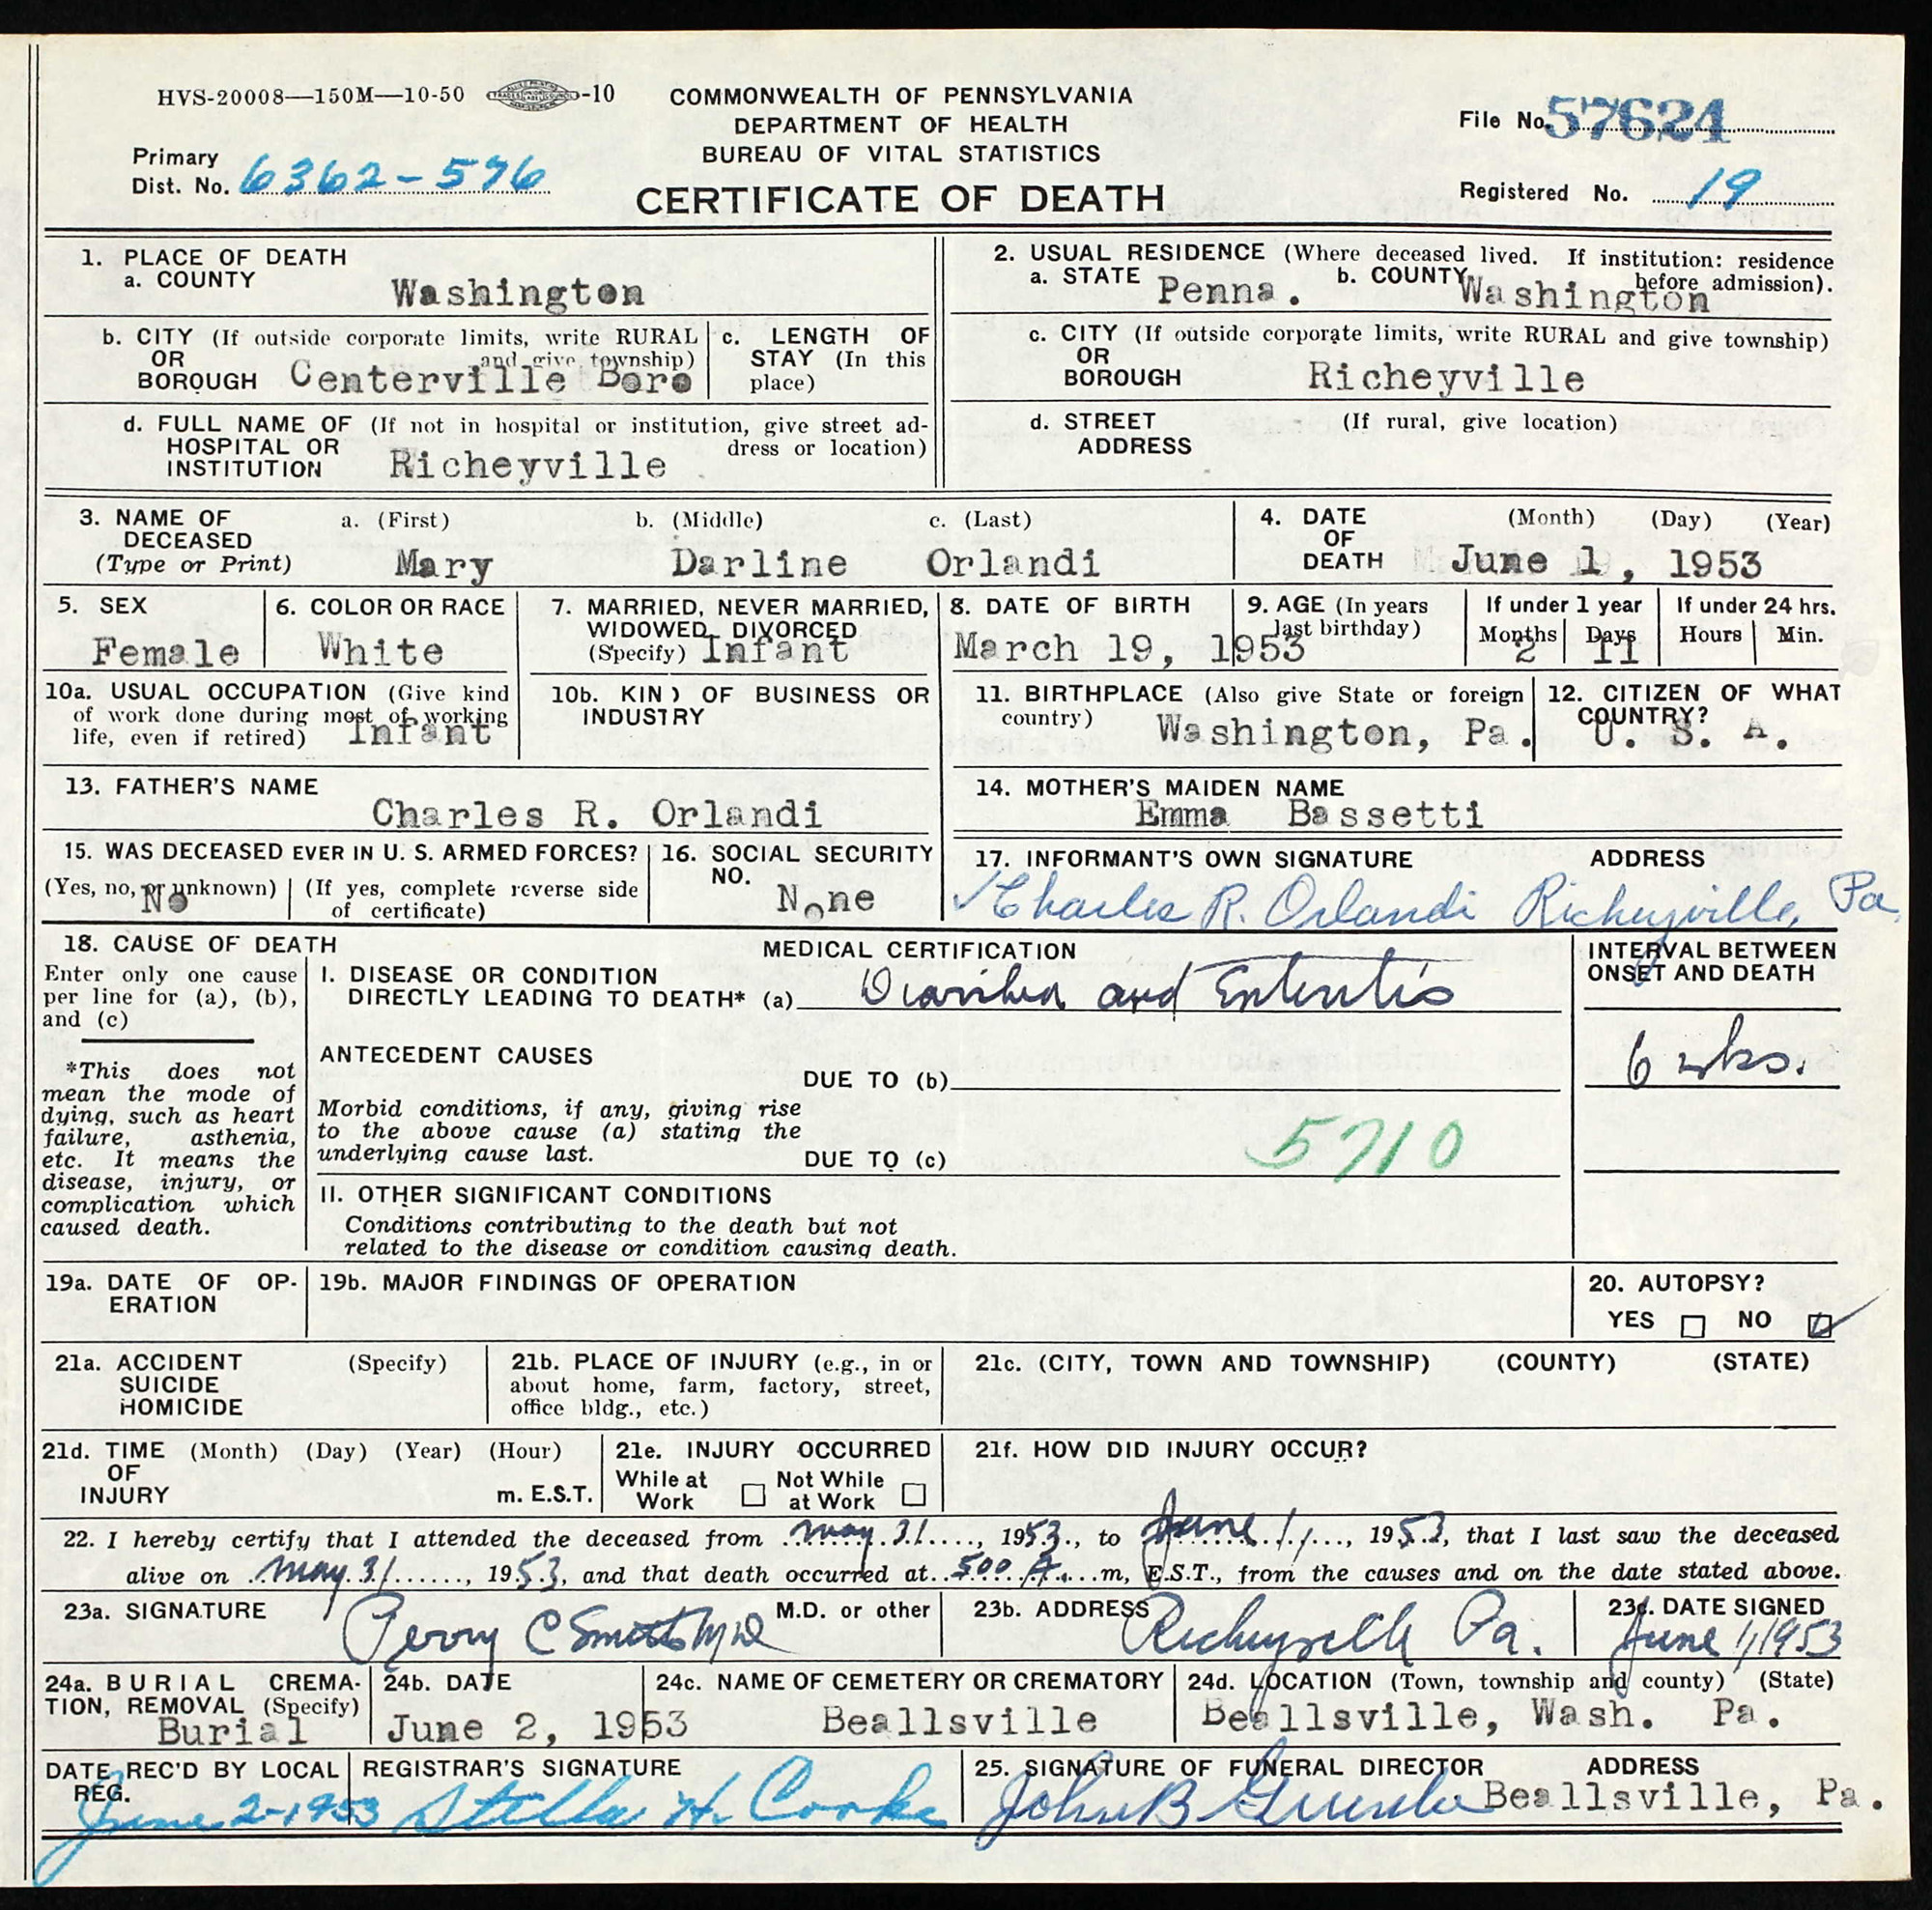 HVS-20008—150M—10-50 -10
COMMONWEALTH OF PENNSYLVANIA
DEPARTMENT OF HEALTH
BUREAU OF VITAL STATISTICS
CERTIFICATE OF DEATH
Primary
Dist. No. 6362-576
File No. 57624
Registered No. 19
1. PLACE OF DEATH
a. COUNTY
Washington
b. CITY (If outside corporate limits, write RURAL
OR and give township)
BOROUGH Centerville Boro
c. LENGTH OF
STAY (In this
place)
d. FULL NAME OF (If not in hospital or institution, give street ad-
HOSPITAL OR dress or location)
INSTITUTION Richeyville
2. USUAL RESIDENCE (Where deceased lived. If institution: residence
before admission).
a. STATE Penna. b. COUNTY Washington
c. CITY (If outside corporate limits, write RURAL and give township)
OR
BOROUGH Richeyville
d. STREET (If rural, give location)
ADDRESS
3. NAME OF a. (First) b. (Middle) c. (Last)
DECEASED
(Type or Print) Mary Darline Orlandi
4. DATE (Month) (Day) (Year)
OF
DEATH June 1, 1953
5. SEX
Female
6. COLOR OR RACE
White
7. MARRIED, NEVER MARRIED,
WIDOWED, DIVORCED
(Specify) Infant
8. DATE OF BIRTH
March 19, 1953
9. AGE (In years
last birthday)
If under 1 year
Months Days
2 11
If under 24 hrs.
Hours Min.
10a. USUAL OCCUPATION (Give kind
of work done during most of working
life, even if retired) Infant
10b. KIND OF BUSINESS OR
INDUSTRY
11. BIRTHPLACE (Also give State or foreign
country) Washington, Pa.
12. CITIZEN OF WHAT
COUNTRY?
U. S. A.
13. FATHER'S NAME
Charles R. Orlandi
14. MOTHER'S MAIDEN NAME
Emma Bassetti
15. WAS DECEASED EVER IN U. S. ARMED FORCES?
(Yes, no, or unknown) (If yes, complete reverse side
No of certificate)
16. SOCIAL SECURITY
NO.
None
17. INFORMANT'S OWN SIGNATURE ADDRESS
Charles R. Orlandi Richeyville, Pa.
18. CAUSE OF DEATH
Enter only one cause
per line for (a), (b),
and (c)
*This does not
mean the mode of
dying, such as heart
failure, asthenia,
etc. It means the
disease, injury, or
complication which
caused death.
MEDICAL CERTIFICATION
I. DISEASE OR CONDITION
DIRECTLY LEADING TO DEATH* (a) Diarrhea and Enteritis
ANTECEDENT CAUSES
DUE TO (b)
Morbid conditions, if any, giving rise
to the above cause (a) stating the
underlying cause last.
DUE TO (c)
5710
II. OTHER SIGNIFICANT CONDITIONS
Conditions contributing to the death but not
related to the disease or condition causing death.
INTERVAL BETWEEN
ONSET AND DEATH
6 wks.
19a. DATE OF OP-
ERATION
19b. MAJOR FINDINGS OF OPERATION
20. AUTOPSY?
YES NO
21a. ACCIDENT (Specify)
SUICIDE
HOMICIDE
21b. PLACE OF INJURY (e.g., in or
about home, farm, factory, street,
office bldg., etc.)
21c. (CITY, TOWN AND TOWNSHIP) (COUNTY) (STATE)
21d. TIME (Month) (Day) (Year) (Hour)
OF
INJURY m. E.S.T.
21e. INJURY OCCURRED
While at Not While
Work at Work
21f. HOW DID INJURY OCCUR?
22. I hereby certify that I attended the deceased from May 31, 1953, to June 1, 1953, that I last saw the deceased
alive on May 31, 1953, and that death occurred at 500 A. m, E.S.T., from the causes and on the date stated above.
23a. SIGNATURE M.D. or other
Perry C Smith MD
23b. ADDRESS
Richeyville Pa.
23c. DATE SIGNED
June 1, 1953
24a. BURIAL CREMA-
TION, REMOVAL (Specify)
Burial
24b. DATE
June 2, 1953
24c. NAME OF CEMETERY OR CREMATORY
Beallsville
24d. LOCATION (Town, township and county) (State)
Beallsville, Wash. Pa.
DATE REC'D BY LOCAL
REG.
June 2-1953
REGISTRAR'S SIGNATURE
Stella H. Cooke
25. SIGNATURE OF FUNERAL DIRECTOR ADDRESS
John B Beallsville, Pa.